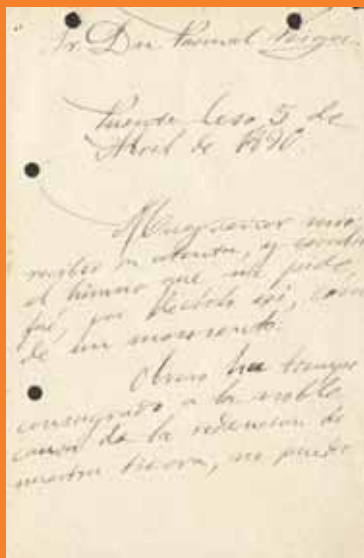 Sr. Dn. Pascual Veiga.
Puente Ceso 5 de
Abril de 1890.
Muy señor mio,
recibir su atenta, y
el himno que me pide,
fué, por decirlo asi, cosa
de un momento.
Obrero ha tiempo
consagrado a la noble
causa de la redencion de
nuestra tierra, no puedo